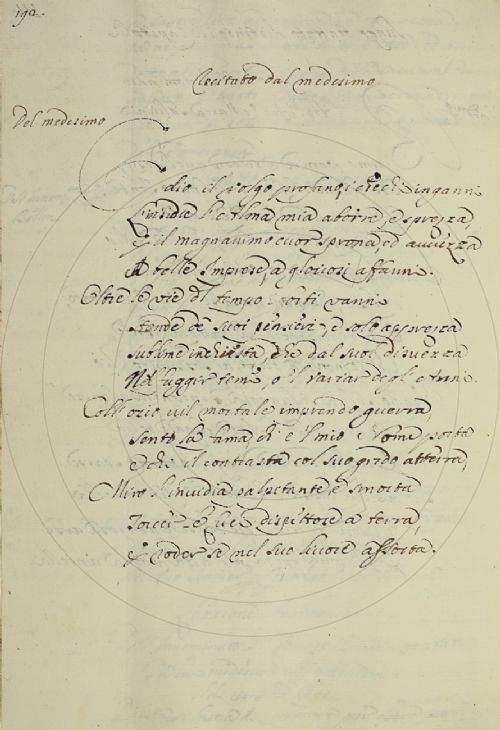 192.
Recitato dal medesimo
Del medesimo
Odio il volgo profan, i ciechi inganni
L'invidia l'Alma mia aborre, e sprezza,
E il magnanimo cuor sprona, ed avvezza
A belle Imprese, a gloriosi affanni.
Oltre le vie del tempo i vanni
Stende de suoi pensieri, e solo apprezza
Sublime inchiesta, che dal suol
Nel fuggir teme, o il variar degl'anni.
Coll'ozio vil mortale imprendo guerra
Sento la fama ch' e 'l mio Nome porta
e chi il contrasta col suo grido atterra,
Miro l'invidia palpitante e smorta
dispettose a terra,
E roder se nel suo livore assorta.